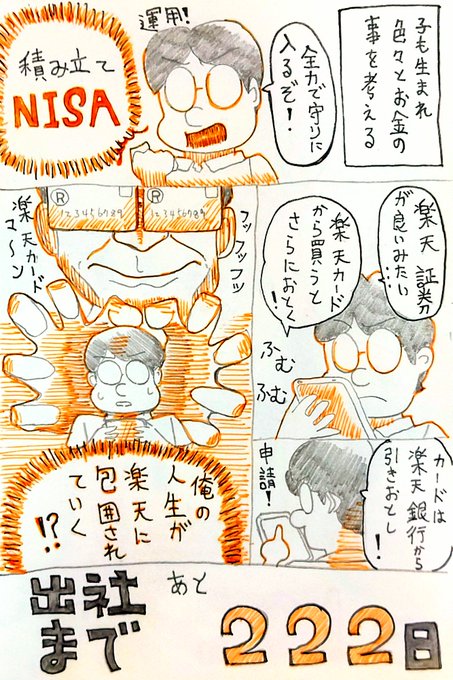 子も生まれ
色々とお金の
事を考える
全力で守りに
入るぞ!
運用!
積み立て
NISA
楽天証券
が良いみたい
楽天カード
から買うと
さらにおとく
!
ふむ
ふむ
カードは
楽天銀行から
引きおとし
!
申請!
フッフッフッ
R
123456789
R
123456789
楽天カード
マ〜ン
俺の
人生が
楽天に
包囲され
ていく
!?
出社
まで
あと
222日